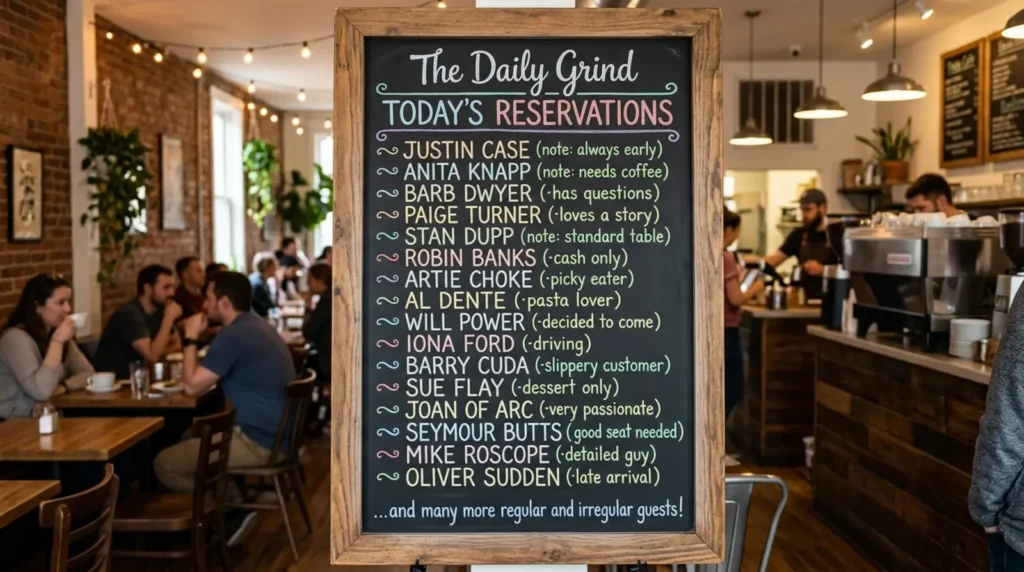 The Daily Grind
TODAY'S RESERVATIONS
~ JUSTIN CASE (note: always early)
~ ANITA KNAPP (note: needs coffee)
~ BARB DWYER (-has questions)
~ PAIGE TURNER (-loves a story)
~ STAN DUPP (note: standard table)
~ ROBIN BANKS (-cash only)
~ ARTIE CHOKE (-picky eater)
~ AL DENTE (-pasta lover)
~ WILL POWER (-decided to come)
~ IONA FORD (-driving)
~ BARRY CUDA (-slippery customer)
~ SUE FLAY (-dessert only)
~ JOAN OF ARC (-very passionate)
~ SEYMOUR BUTTS (good seat needed)
~ MIKE ROSCOPE (-detailed guy)
~ OLIVER SUDDEN (-late arrival)
...and many more regular and irregular guests!